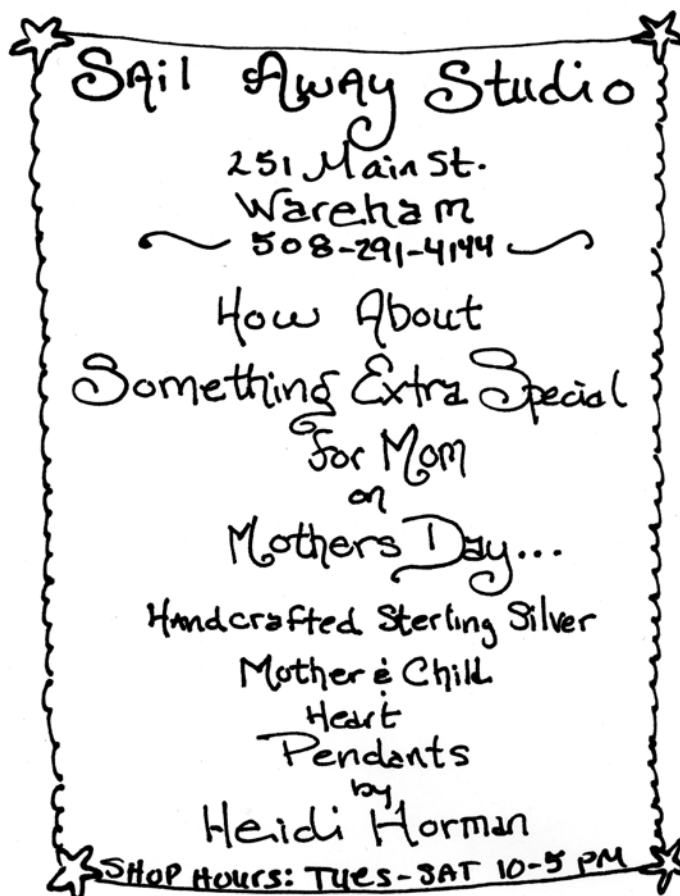 Sail Away Studio
251 Main St.
Wareham
508-291-4144
How About
Something Extra Special
for Mom
on
Mothers Day...
Handcrafted Sterling Silver
Mother & Child
Heart
Pendants
by
Heidi Horman
SHOP HOURS: TUES-SAT 10-5 PM